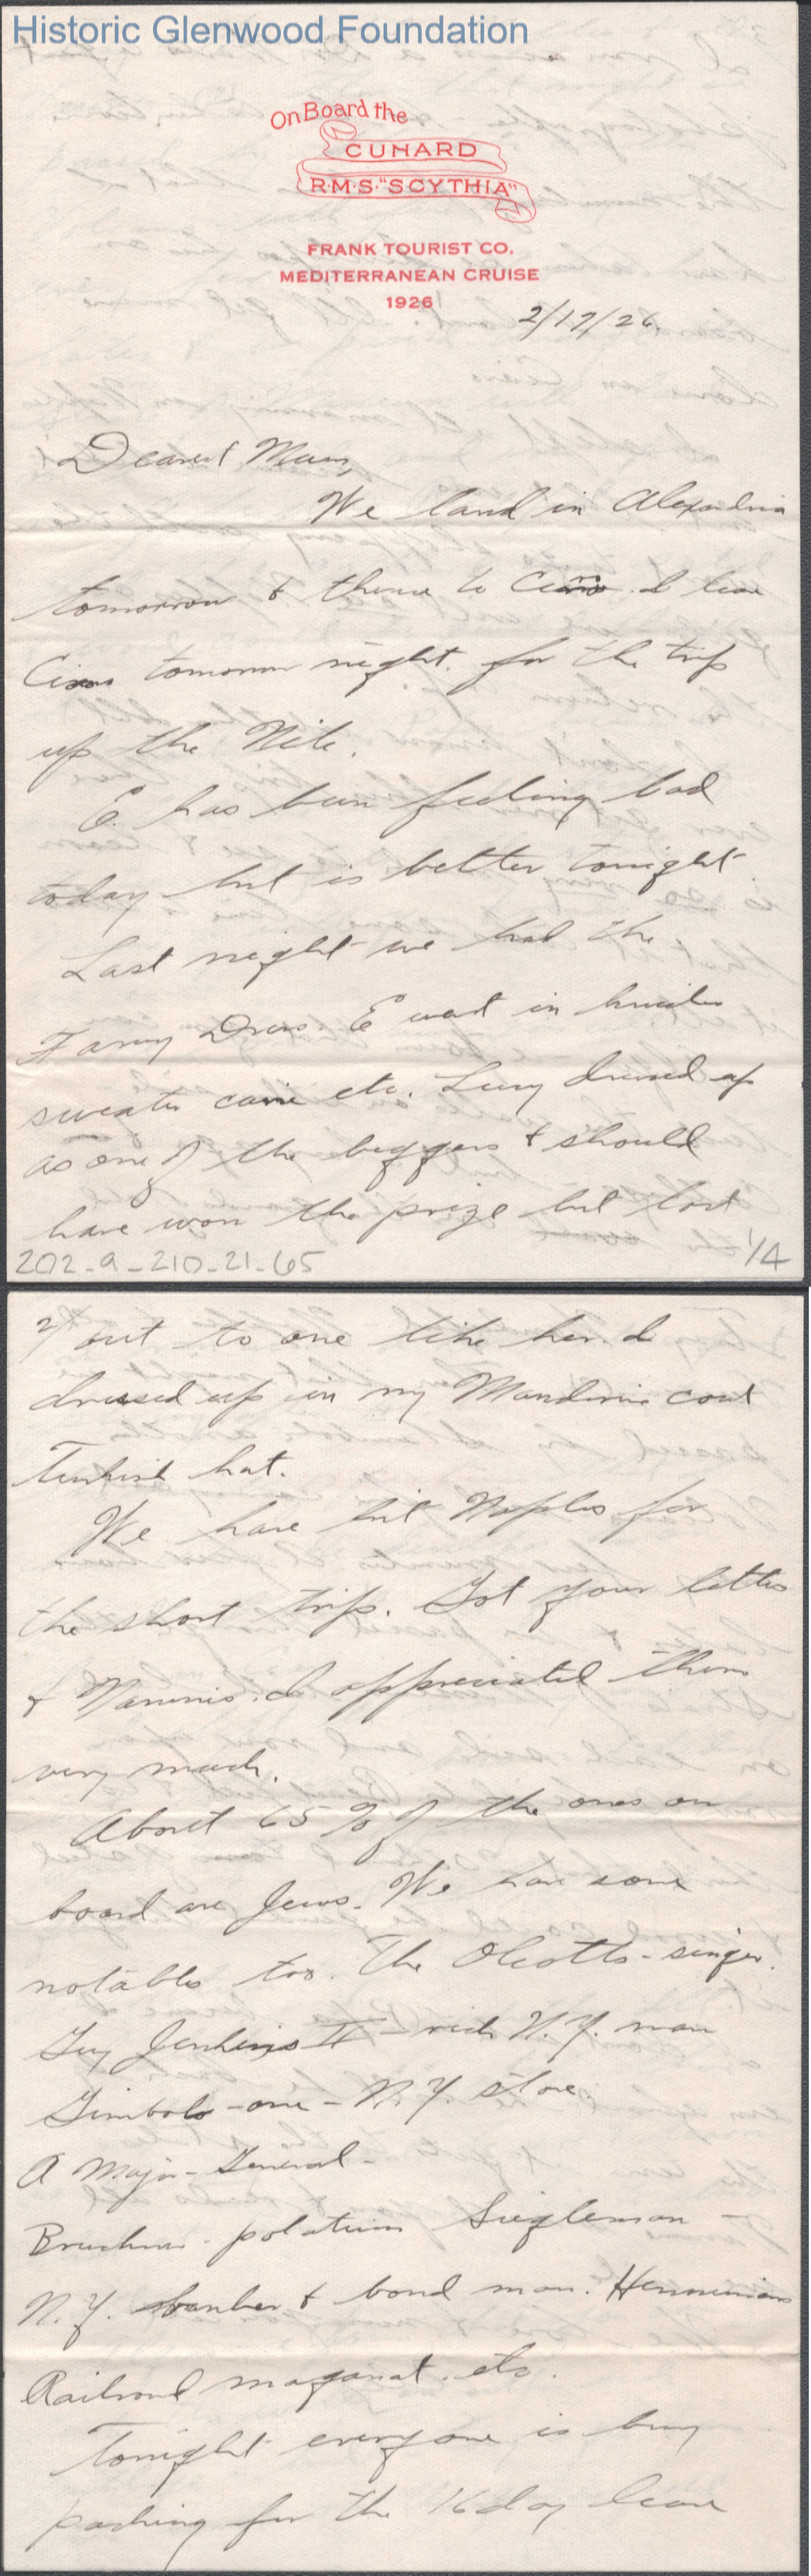 Historic Glenwood Foundation
On Board the
CUNARD
R·M·S·"SCYTHIA"
FRANK TOURIST CO.
MEDITERRANEAN CRUISE
1926
2/17/26.
Dearest Mum,
We land in Alexandria
tomorrow & thence to Cairo. I leave
Cairo tomorrow night. for the trip
up the Nile.
E. has been feeling bad
today but is better tonight.
Last night we had the
Fancy Dress. E went in
sweater cane etc. Lucy dressed up
as one of the beggars & should
have won the prize but lost
202-9-210-21-65
1/4
2/ out to one like her. I
dressed up in my Mandarin coat
Turkish hat.
We have hit Naples for
the short trip. Got your letter
& I appreciated them
very much.
About 65% of the ones on
board are Jews. We have some
notables too. The Olcotts - singer.
Guy Jenkins II - rich N.Y. man
Gimbels - one - N.Y. store.
A Major - General -
Siegleman -
N.Y. banker & bond man.
Railroad maganat. etc.
Tonight everyone is busy
packing for the 16 day leave